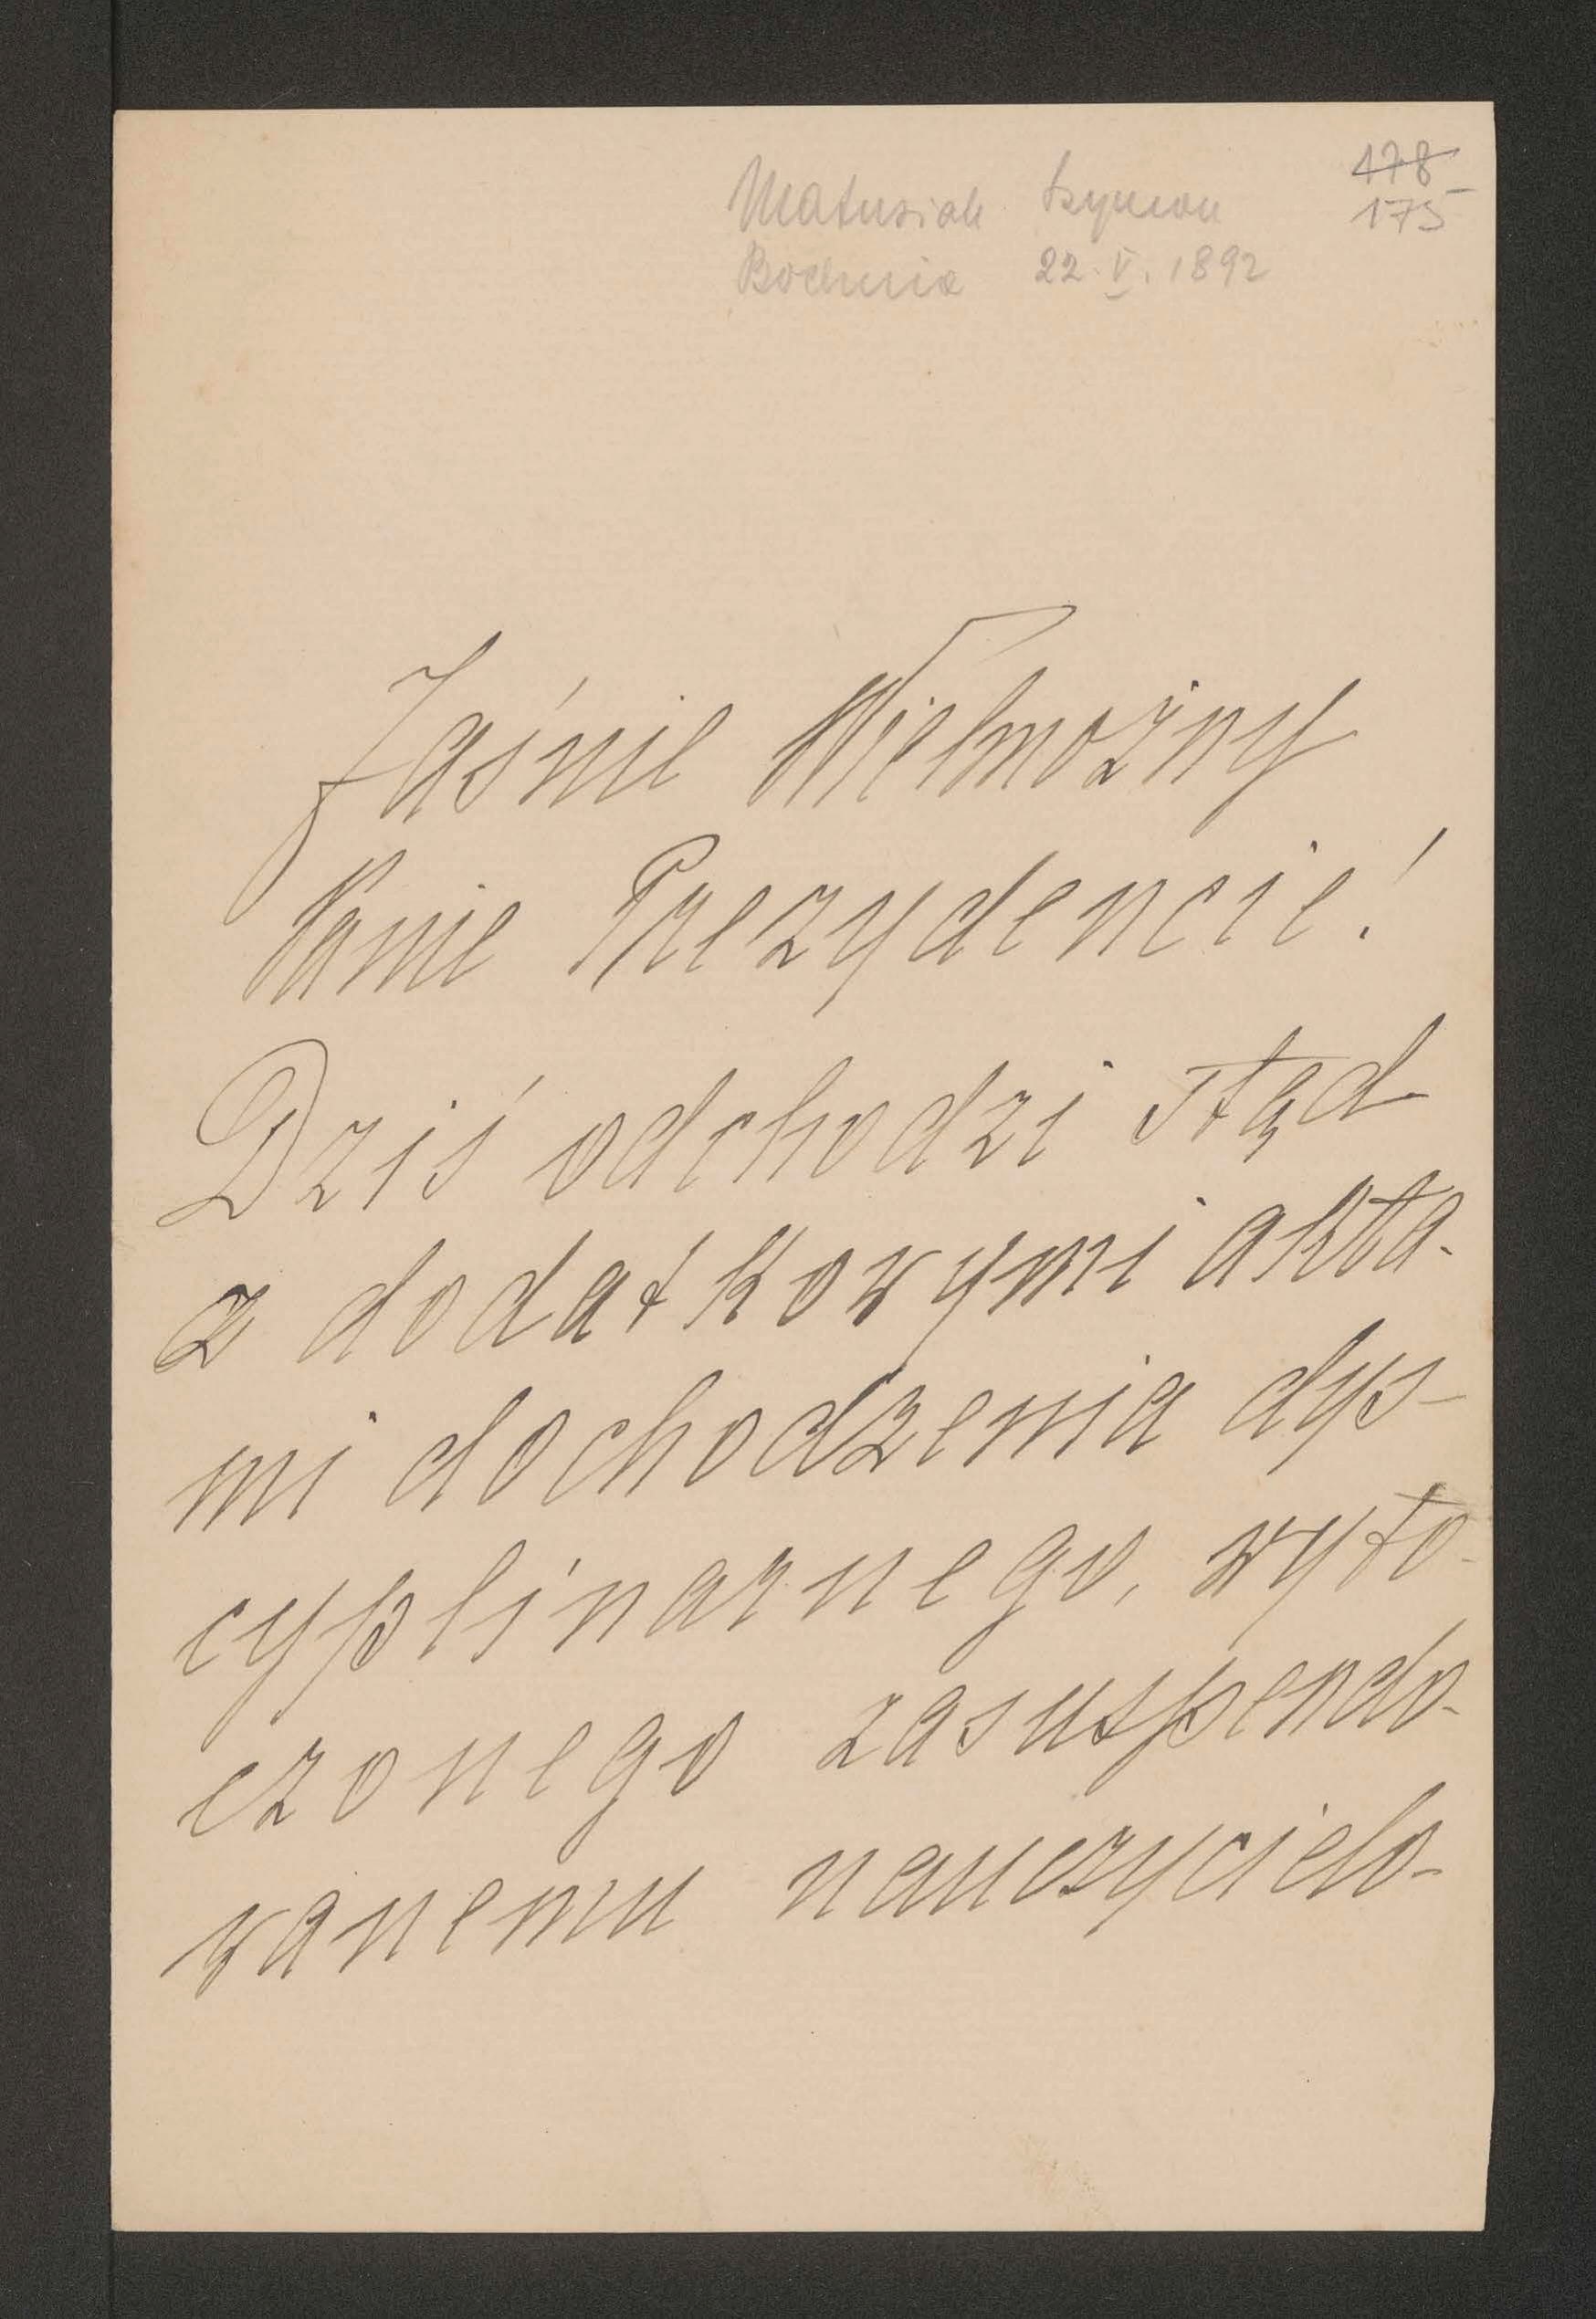 178
Matusiak Szymon 175
Bochnia 22. V. 1892
Jaśnie Wielmożny
Panie Prezydencie!
Dziś odchodzi stąd
z dodatkowymi akta-
mi dochodzenia dys-
cyplinarnego, wyto-
czonego zasuspendo-
wanemu nauczycielo-